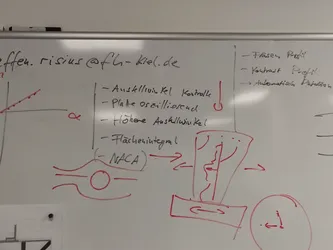 effen.risius@fh-kiel.de
α
- Anstellwinkel Kontrolle
- Platte oszillierend
- Höhere Anstellwinkel
- Flächenintegral
- NACA
- Kontrast